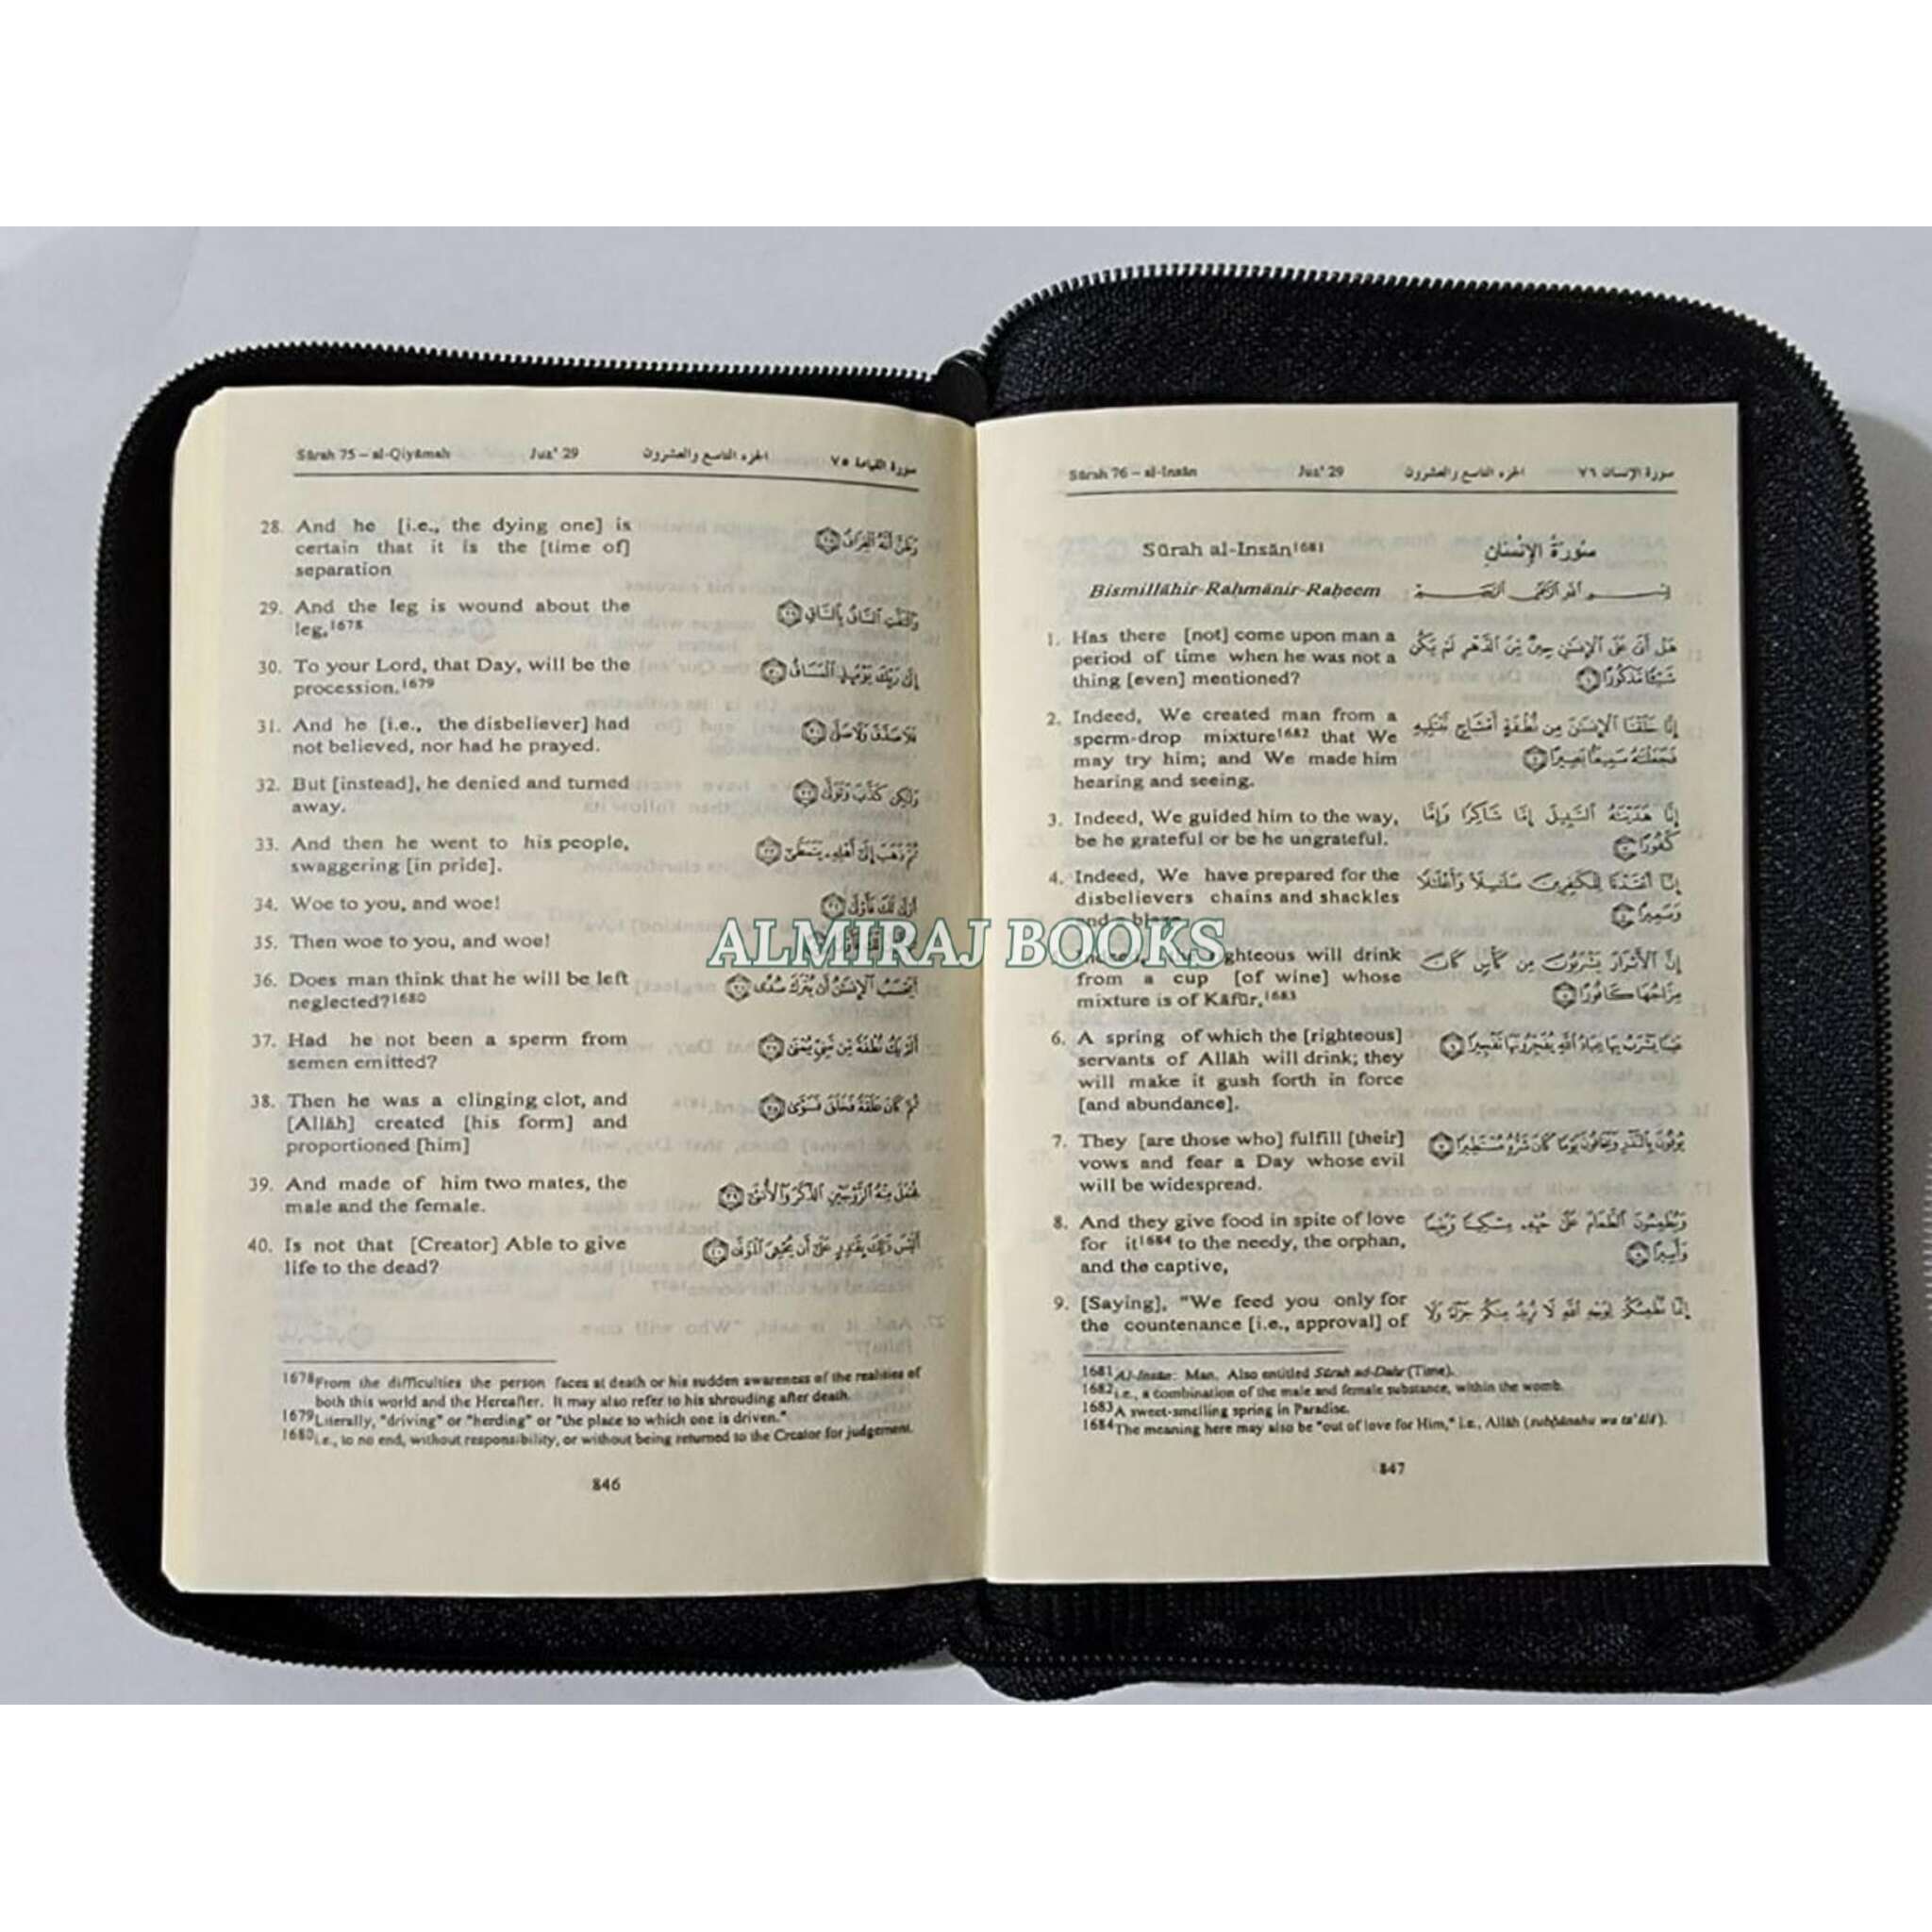 Sūrah 75 – al-Qiyāmah Juz' 29 الجزء التاسع والعشرون سورة القيامة ٧٥
28. And he [i.e., the dying one] is
certain that it is the [time of]
separation
وَظَنَّ أَنَّهُ ٱلْفِرَاقُ ٢٨
29. And the leg is wound about the
leg,1678
وَٱلْتَفَّتِ ٱلسَّاقُ بِٱلسَّاقِ ٢٩
30. To your Lord, that Day, will be the
procession.1679
إِلَىٰ رَبِّكَ يَوْمَئِذٍ ٱلْمَسَاقُ ٣٠
31. And he [i.e., the disbeliever] had
not believed, nor had he prayed.
فَلَا صَدَّقَ وَلَا صَلَّىٰ ٣١
32. But [instead], he denied and turned
away.
وَلَٰكِن كَذَّبَ وَتَوَلَّىٰ ٣٢
33. And then he went to his people,
swaggering [in pride].
ثُمَّ ذَهَبَ إِلَىٰ أَهْلِهِۦ يَتَمَطَّىٰ ٣٣
34. Woe to you, and woe!
أَوْلَىٰ لَكَ فَأَوْلَىٰ ٣٤
35. Then woe to you, and woe!
36. Does man think that he will be left
neglected?1680
أَيَحْسَبُ ٱلْإِنسَٰنُ أَن يُتْرَكَ سُدًى ٣٦
37. Had he not been a sperm from
semen emitted?
أَلَمْ يَكُ نُطْفَةً مِّن مَّنِىٍّ يُمْنَىٰ ٣٧
38. Then he was a clinging clot, and
[Allāh] created [his form] and
proportioned [him]
ثُمَّ كَانَ عَلَقَةً فَخَلَقَ فَسَوَّىٰ ٣٨
39. And made of him two mates, the
male and the female.
فَجَعَلَ مِنْهُ ٱلزَّوْجَيْنِ ٱلذَّكَرَ وَٱلْأُنثَىٰ ٣٩
40. Is not that [Creator] Able to give
life to the dead?
أَلَيْسَ ذَٰلِكَ بِقَٰدِرٍ عَلَىٰ أَن يُحْـِۧىَ ٱلْمَوْتَىٰ ٤٠
1678From the difficulties the person faces at death or his sudden awareness of the realities of
both this world and the Hereafter. It may also refer to his shrouding after death.
1679Literally, "driving" or "herding" or "the place to which one is driven."
1680i.e., to no end, without responsibility, or without being returned to the Creator for judgement.
846
Sūrah 76 – al-Insān Juz' 29 الجزء التاسع والعشرون سورة الإنسان ٧٦
Sūrah al-Insān1681 سُورَةُ الإِنسَانِ
Bismillāhir-Raḥmānir-Raḥeem بِسْمِ ٱللَّهِ ٱلرَّحْمَٰنِ ٱلرَّحِيمِ
1. Has there [not] come upon man a
period of time when he was not a
thing [even] mentioned?
هَلْ أَتَىٰ عَلَى ٱلْإِنسَٰنِ حِينٌ مِّنَ ٱلدَّهْرِ لَمْ يَكُن
شَيْـًٔا مَّذْكُورًا ١
2. Indeed, We created man from a
sperm-drop mixture1682 that We
may try him; and We made him
hearing and seeing.
إِنَّا خَلَقْنَا ٱلْإِنسَٰنَ مِن نُّطْفَةٍ أَمْشَاجٍ نَّبْتَلِيهِ
فَجَعَلْنَٰهُ سَمِيعًۢا بَصِيرًا ٢
3. Indeed, We guided him to the way,
be he grateful or be he ungrateful.
إِنَّا هَدَيْنَٰهُ ٱلسَّبِيلَ إِمَّا شَاكِرًا وَإِمَّا
كَفُورًا ٣
4. Indeed, We have prepared for the
disbelievers chains and shackles
and a blaze.
إِنَّآ أَعْتَدْنَا لِلْكَٰفِرِينَ سَلَٰسِلَا۟ وَأَغْلَٰلًا
وَسَعِيرًا ٤
ALMIRAJ BOOKS
righteous will drink
from a cup [of wine] whose
mixture is of Kāfūr,1683
إِنَّ ٱلْأَبْرَارَ يَشْرَبُونَ مِن كَأْسٍ كَانَ
مِزَاجُهَا كَافُورًا ٥
6. A spring of which the [righteous]
servants of Allāh will drink; they
will make it gush forth in force
[and abundance].
عَيْنًا يَشْرَبُ بِهَا عِبَادُ ٱللَّهِ يُفَجِّرُونَهَا تَفْجِيرًا ٦
7. They [are those who] fulfill [their]
vows and fear a Day whose evil
will be widespread.
يُوفُونَ بِٱلنَّذْرِ وَيَخَافُونَ يَوْمًا كَانَ شَرُّهُۥ مُسْتَطِيرًا ٧
8. And they give food in spite of love
for it1684 to the needy, the orphan,
and the captive,
وَيُطْعِمُونَ ٱلطَّعَامَ عَلَىٰ حُبِّهِۦ مِسْكِينًا وَيَتِيمًا
وَأَسِيرًا ٨
9. [Saying], "We feed you only for
the countenance [i.e., approval] of
إِنَّمَا نُطْعِمُكُمْ لِوَجْهِ ٱللَّهِ لَا نُرِيدُ مِنكُمْ جَزَآءً وَلَا
1681Al-Insān: Man. Also entitled Sūrah ad-Dahr (Time).
1682i.e., a combination of the male and female substance, within the womb.
1683A sweet-smelling spring in Paradise.
1684The meaning here may also be "out of love for Him," i.e., Allāh (subḥānahu wa ta'ālā).
847